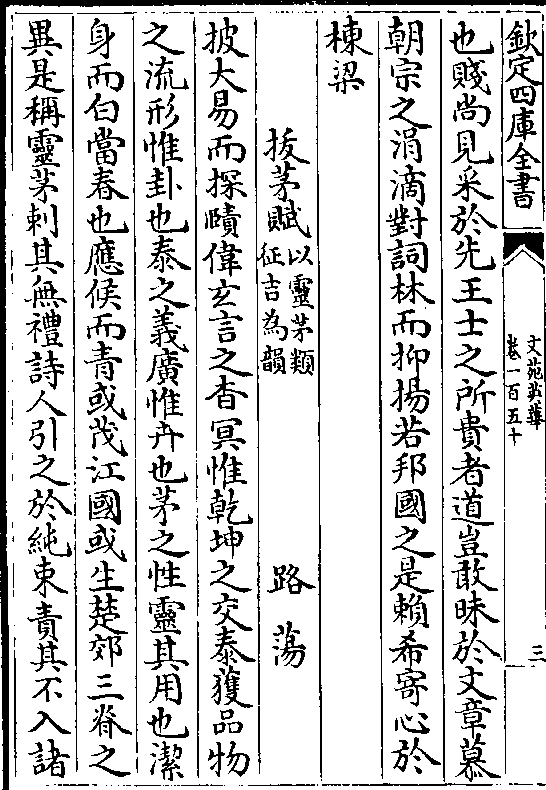 欽定四庫全書
文苑英華
卷一百五十
三
也賤尚見采於先王士之所貴者道豈敢昧於文章慕
朝宗之涓滴對詞林而抑揚若邦國之是賴希寄心於
棟梁
拔茅賦以靈茅類征吉為韻
路蕩
披大易而探賾偉玄言之杳冥惟乾坤之交泰獲品物
之流形惟卦也泰之義廣惟卉也茅之性靈其用也潔
身而白當春也應候而青或茂江國或生楚郊三脊之
異是稱靈茅刺其無禮詩人引之於純束責其不入諸